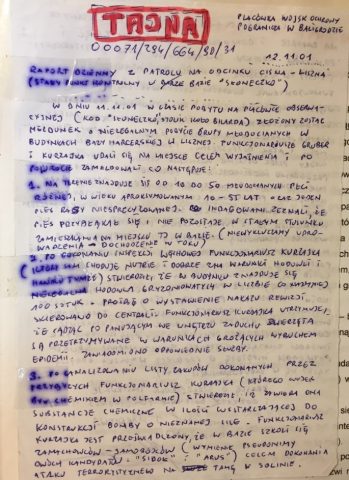 TAJNA
00071/294/664/90/31
PLACÓWKA WOJSK OCHRONY
POGRANICZA W BALIGRODZIE
12.11.01
RAPORT DZIENNY Z PATROLU NA ODCINKU CISNA - LISZNA
(STAŁY PUNKT KONTROLNY W BARZE BAZIE "SŁONECZKO")
W DNIU 11.11.01 W CZASIE POBYTU NA PUNKCIE OBSERWA-
CYJNEJ (KOD "SŁONECZKO", STOLIK KOŁO BILARDA) ZŁOŻONY ZOSTAŁ
MELDUNEK O NIELEGALNYM POBYCIE GRUPY MŁODOCIANYCH W
BUDYNKACH BAZY HARCERSKIEJ W LISZNEJ. FUNKCJONARIUSZE GRUBER
I KURRAJKA UDALI SIĘ NA MIEJSCE CELEM WYJAŚNIENIA I PO
POWROCIE ZAMELDOWALI CO NASTĘPUJE:
1. NA TERENIE ZNAJDUJE SIĘ OD 10 DO 50 MŁODOCIANYCH PŁCI
RÓŻNEJ, W WIEKU APROKSYMOWANYM 10-55 LAT ORAZ JEDEN
PIES RASY NIESPRECYZOWANEJ. INDAGOWANI ZEZNALI, ŻE
PIES PRZYBŁĄKAŁ SIĘ I NIE POZOSTAJE W STAŁYM STOSUNKU
ZAMIESZKANIA DO MIEJSCU TO W BAZIE. (NIEWYKLUCZAMY UPRO-
WADZENIA → DOCHODZENIE W TOKU)
2. PO DOKONANIU INSPEKCJI WĘCHOWEJ FUNKCJONARIUSZ KURRAJKA
(KTÓRY SAM HODUJE ŚWINIE I DOBRZE ZNA WARUNKI HODOWLI I
HANDLU TYMŻE) STWIERDZIŁ, ŻE W BUDYNKU ZNAJDUJE SIĘ
NIELEGALNA HODOWLA GRYZONIOWATYCH W LICZBIE CO NAJMNIEJ
100 SZTUK. PROŚBĘ O WYSTAWIENIE NAKAZU REWIZJI
SKIEROWANO DO CENTRALI. FUNKCJONARIUSZ KURRAJKA UTRZYMUJE,
ŻE SĄDZĄC PO PANUJĄCYM WE WNĘTRZU ZADUCHU ZWIERZĘTA
SĄ PRZETRZYMYWANE W WARUNKACH GROŻĄCYCH WYBUCHEM
EPIDEMII. ZAWIADOMIONO ODPOWIEDNIE SŁUŻBY.
3. PO ANALIZOWANIU LISTY ZAKUPÓW DOKONANYCH PRZEZ
FUNKCJONARIUSZ KURRAJKA (KTÓREGO
BYŁ CHEMIKIEM W POLFARMIE) STWIERDZIŁ, IŻ ZAWIERA ONA
SUBSTANCJE CHEMICZNE W ILOŚCI WYSTARCZAJĄCEJ DO
KONSTRUKCJI BOMBY O NIEZNANEJ SILE. FUNKCJONARIUSZ
KURRAJKA JEST PRZEŚWIADCZONY, ŻE W BAZIE SZKOLI SIĘ
ZAMACHOWCÓW - SAMOBÓJCÓW (WYMIENIŁ PSEUDONIMY
OWYCH KANDYDATÓW - "SIDOK" I "ARUS") CELEM DOKONANIA
ATAKU TERRORYSTYCZNEGO NA TAMĘ W SOLINIE.